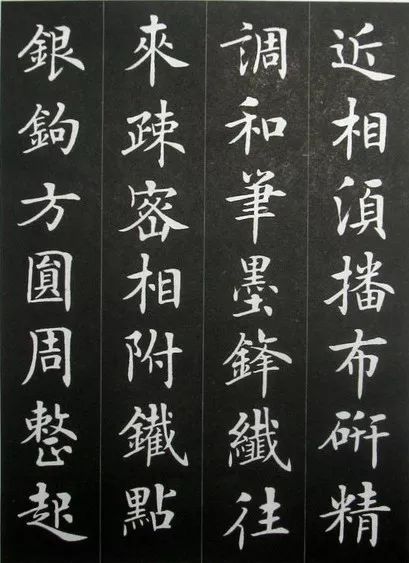 近相須播布研精
調和筆墨鋒纖往
來疎密相附鐵點
銀鉤方圓周整起